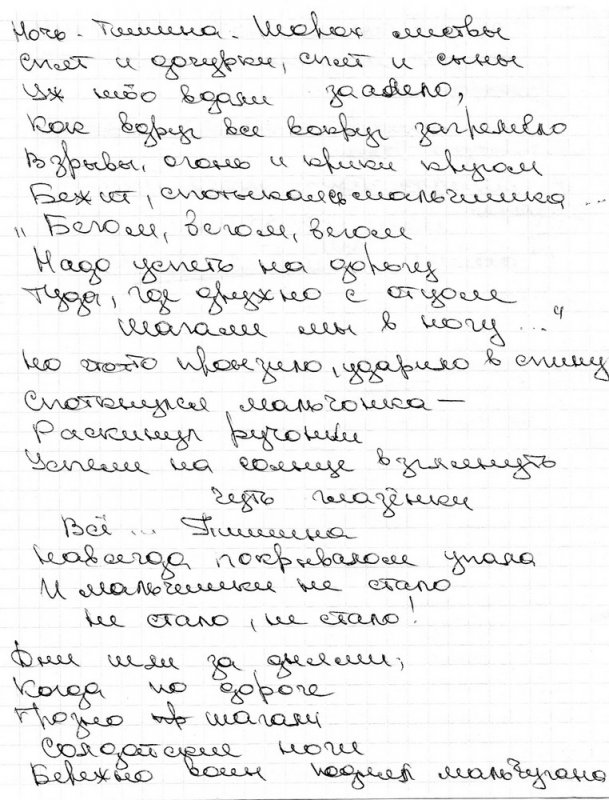 Ночь. Тишина. Шорох листвы
Спят и дочурки, спят и сыны
Уж небо вдали заалело,
Как вдруг все вокруг загремело
Взрывы, огонь и крики кругом
Бежит, спотыкаясь мальчишка ...
„ Бегом, бегом, бегом
Надо успеть на дорогу
Туда, где дружно с отцом
Шагали мы в ногу ..."
Но что-то пронзило, ударило в спину
Споткнулся мальчонка —
Раскинул ручонки
Успели на солнце взглянуть
Чуть глазёнки
Всё ... Тишина
Навсегда покрывалом упала
И мальчишки не стало
Не стало, не стало!
Дни шли за днями;
Когда по дороге
Грозно шагали
Солдатские ноги
Бережно воин поднял мальчугана